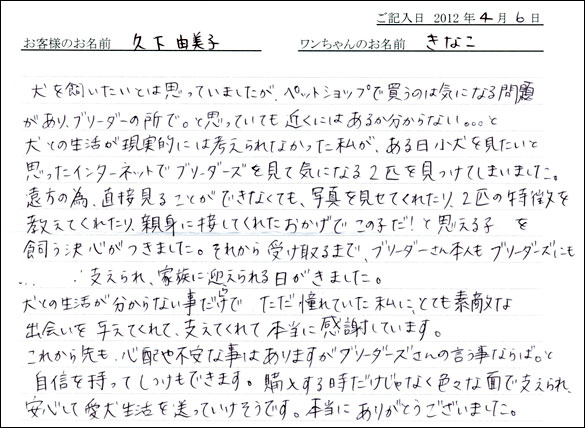 ご記入日 2012年4月6日
お客様のお名前 久下 由美子 ワンちゃんのお名前 きなこ
犬を飼いたいとは思っていましたが、ペットショップで買うのは気になる問題
があり、ブリーダーの所で。と思っていても近くにはあるか分からない。。。と
犬との生活が現実的には考えられてなかった私が、ある日小犬を見たいと
思ったインターネットでブリーダーズを見て気になる2匹を見つけてしまいました。
遠方の為、直接見ることができなくても、写真を見せてくれたり、2匹の特徴を
教えてくれたり、親身に接してくれたおかげでこの子だ!と思える子 を
飼う決心がつきました。それから受け取るまで、ブリーダーさん本人もブリーダーズにも
支えられ、家族に迎えられる日がきました。
犬との生活が分からない事だらけで ただ憧れていた私に、とても素敵な
出会いを与えてくれて、支えてくれて本当に感謝しています。
これから先も、心配や不安な事はありますがブリーダーズさんの言う事ならば。と
自信を持ってしつけもできます。購入する時だけじゃなく色々な面で支えられ、
安心して愛犬生活を送っていけそうです。本当にありがとうございました。